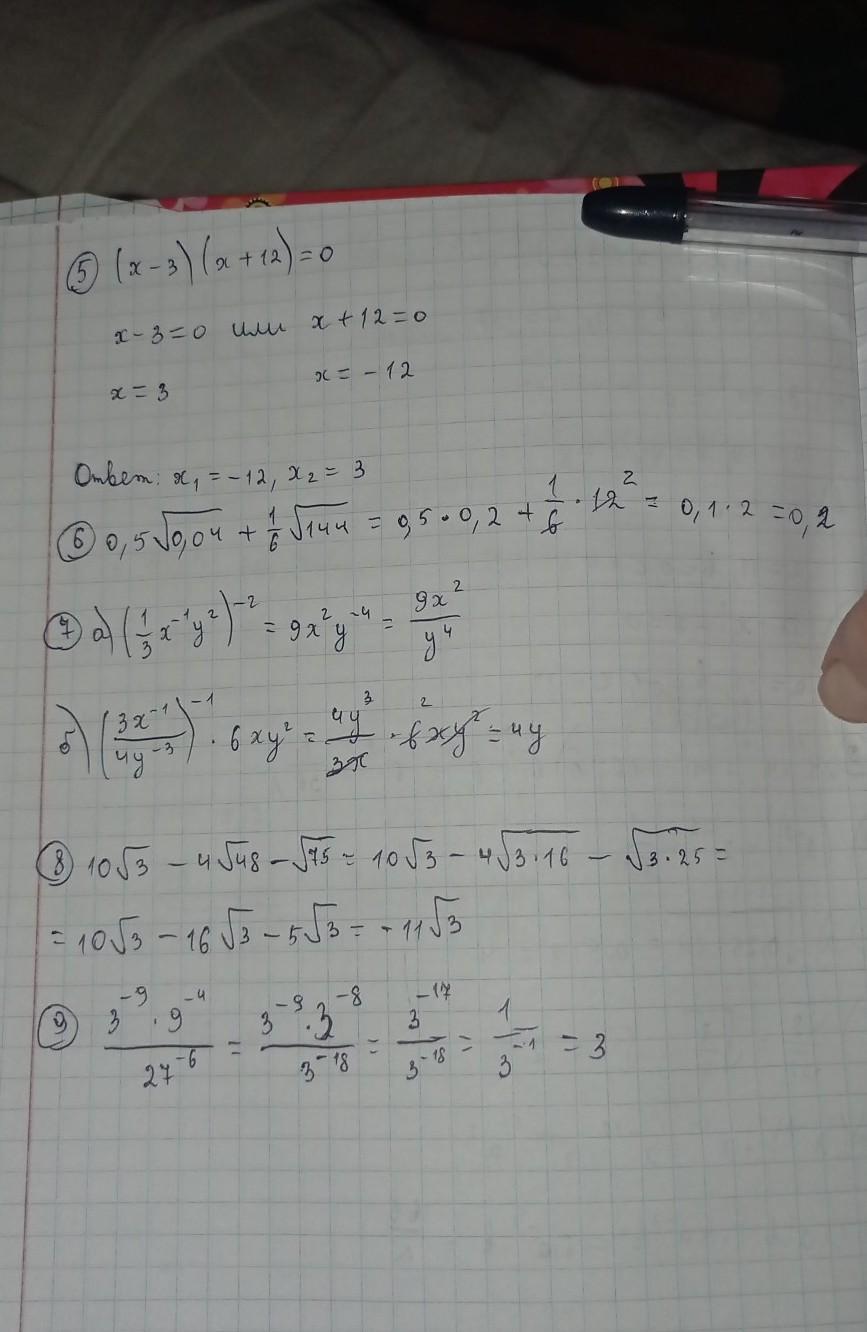 ⑤ (x-3)(x+12)=0
x-3=0 или x+12=0
x=3 x=-12
Ответ: x₁=-12, x₂=3
⑥ 0,5√0,04 + 1/6 √144 = 0,5·0,2 + 1/6 · 12² = 0,1·2 = 0,2
⑦ а) (1/3 x⁻¹y²)⁻² = 9x²y⁻⁴ = 9x²/y⁴
б) (3x⁻¹/4y⁻³)⁻¹ · 6xy² = 4y³/3x · 6²xy² = 4y
⑧ 10√3 - 4√48 - √75 = 10√3 - 4√3·16 - √3·25 =
= 10√3 - 16√3 - 5√3 = -11√3
⑨ 3⁻⁹·9⁻⁴/27⁻⁶ = 3⁻⁹·3⁻⁸/3⁻¹⁸ = 3⁻¹⁷/3⁻¹⁸ = 1/3⁻¹ = 3